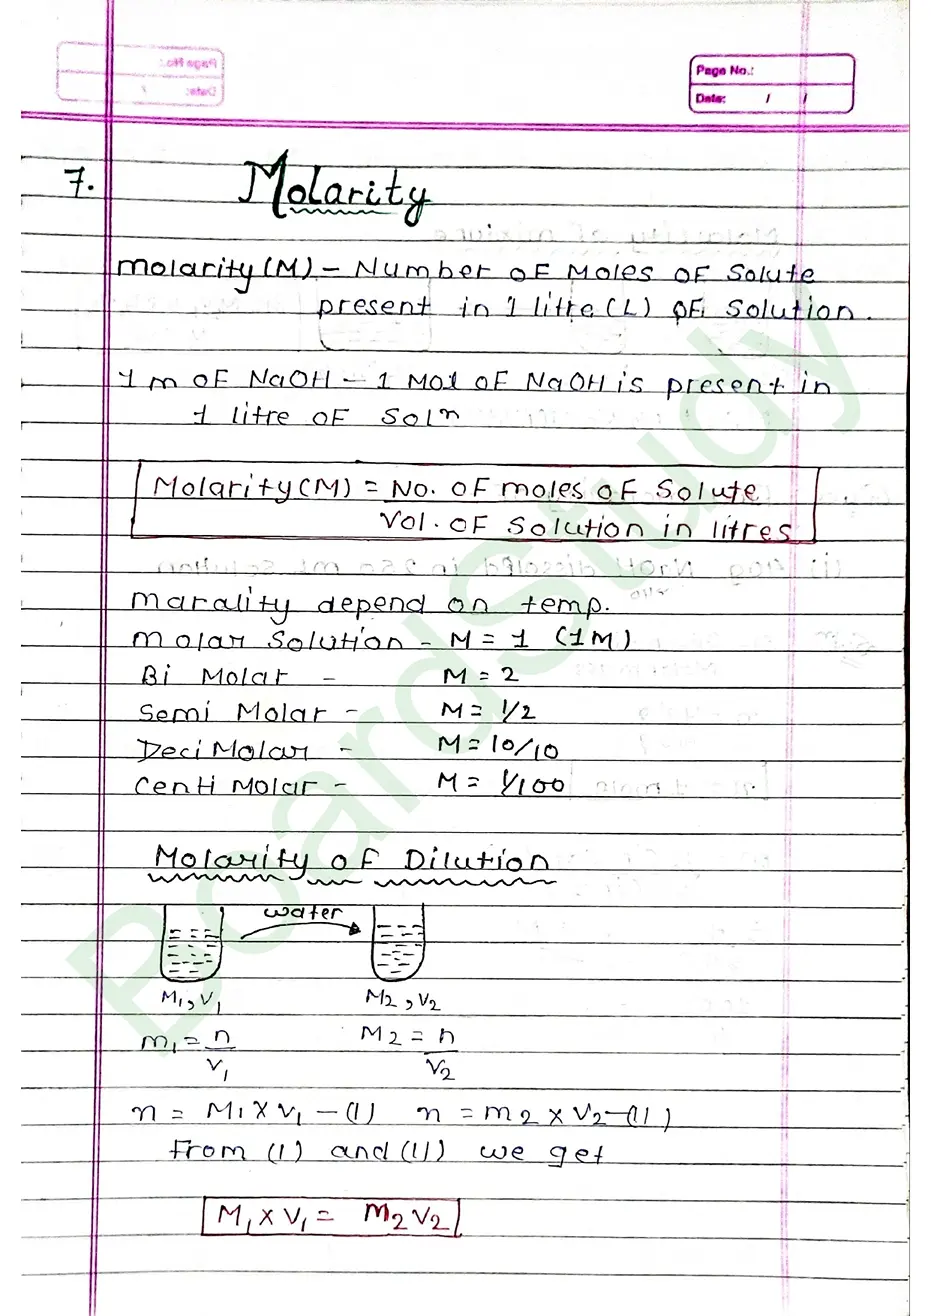 Page No.:
Date: / /
7. Molarity
Molarity (M) - Number of Moles of Solute
present in 1 litre (L) of Solution.
1 m of NaOH - 1 Mol of NaOH is present in
1 litre of Solⁿ
Molarity (M) = No. of moles of Solute
Vol. of Solution in litres
Marality depend on temp.
Molar Solution - M = 1 (1M)
Bi Molar - M = 2
Semi Molar - M = 1/2
Deci Molar - M = 10/10
Centi Molar - M = 1/100
Molarity of Dilution
water
M₁, V₁ M₂, V₂
m₁ = n/V₁ M₂ = n/V₂
n = M₁ X V₁ - (I) n = m₂ X V₂ - (II)
From (I) and (II) we get
M₁ X V₁ = M₂ V₂
BoardStudy